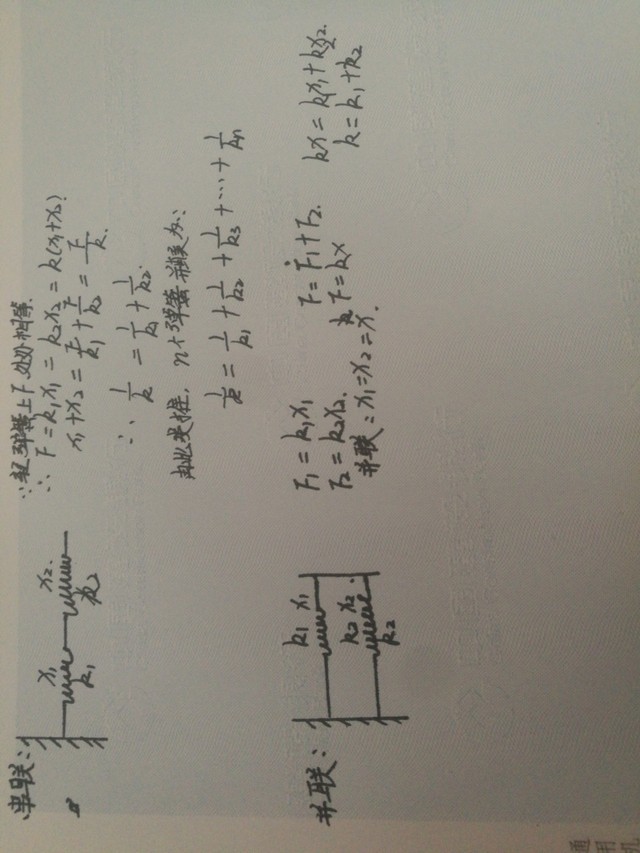 串联:
x₁ x₂
k₁ k₂
∵ 弹簧上下处处相等.
∴ F = k₁x₁ = k₂x₂ = k(x₁+x₂)
x₁+x₂ = F/k₁ + F/k₂ = F/k.
∴ 1/k = 1/k₁ + 1/k₂.
由此类推, n个弹簧串联为:
1/k = 1/k₁ + 1/k₂ + 1/k₃ + … + 1/kn
并联:
k₁ x₁
k₂ x₂
k₂
F₁ = k₁x₁
F₂ = k₂x₂.
并联: x₁=x₂=x.
F = F₁+F₂.
F = kx
kx = k₁x₁+k₂x₂
k = k₁+k₂
通用机